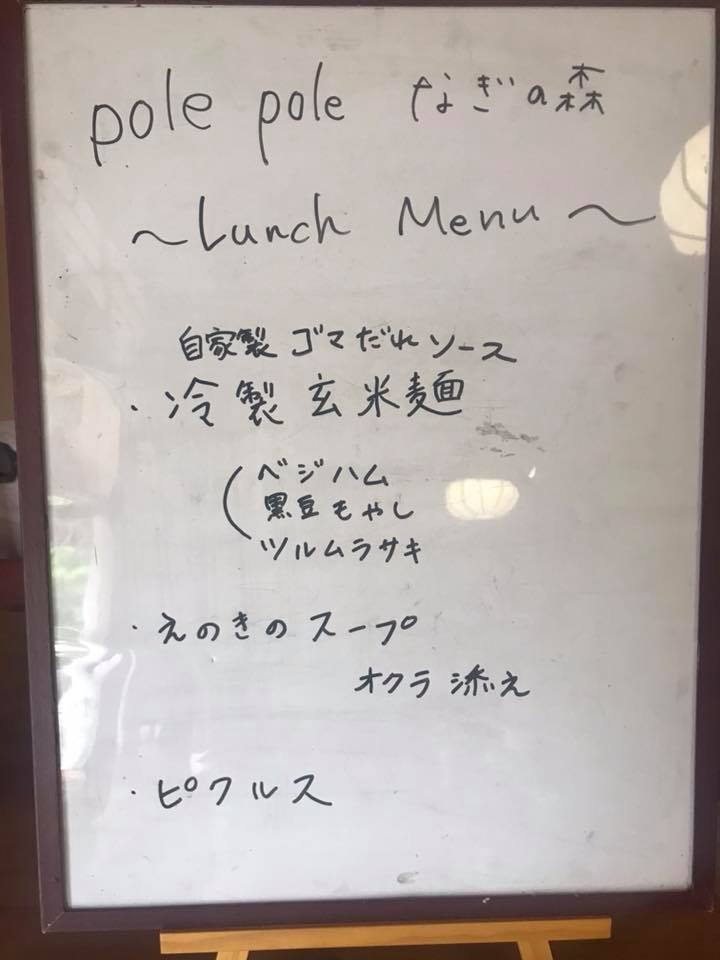 pole pole なぎの森
～Lunch Menu～
自家製 ゴマだれソース
・冷製玄米麺
ベジハム
黒豆もやし
ツルムラサキ
・えのきのスープ
オクラ添え
・ピクルス